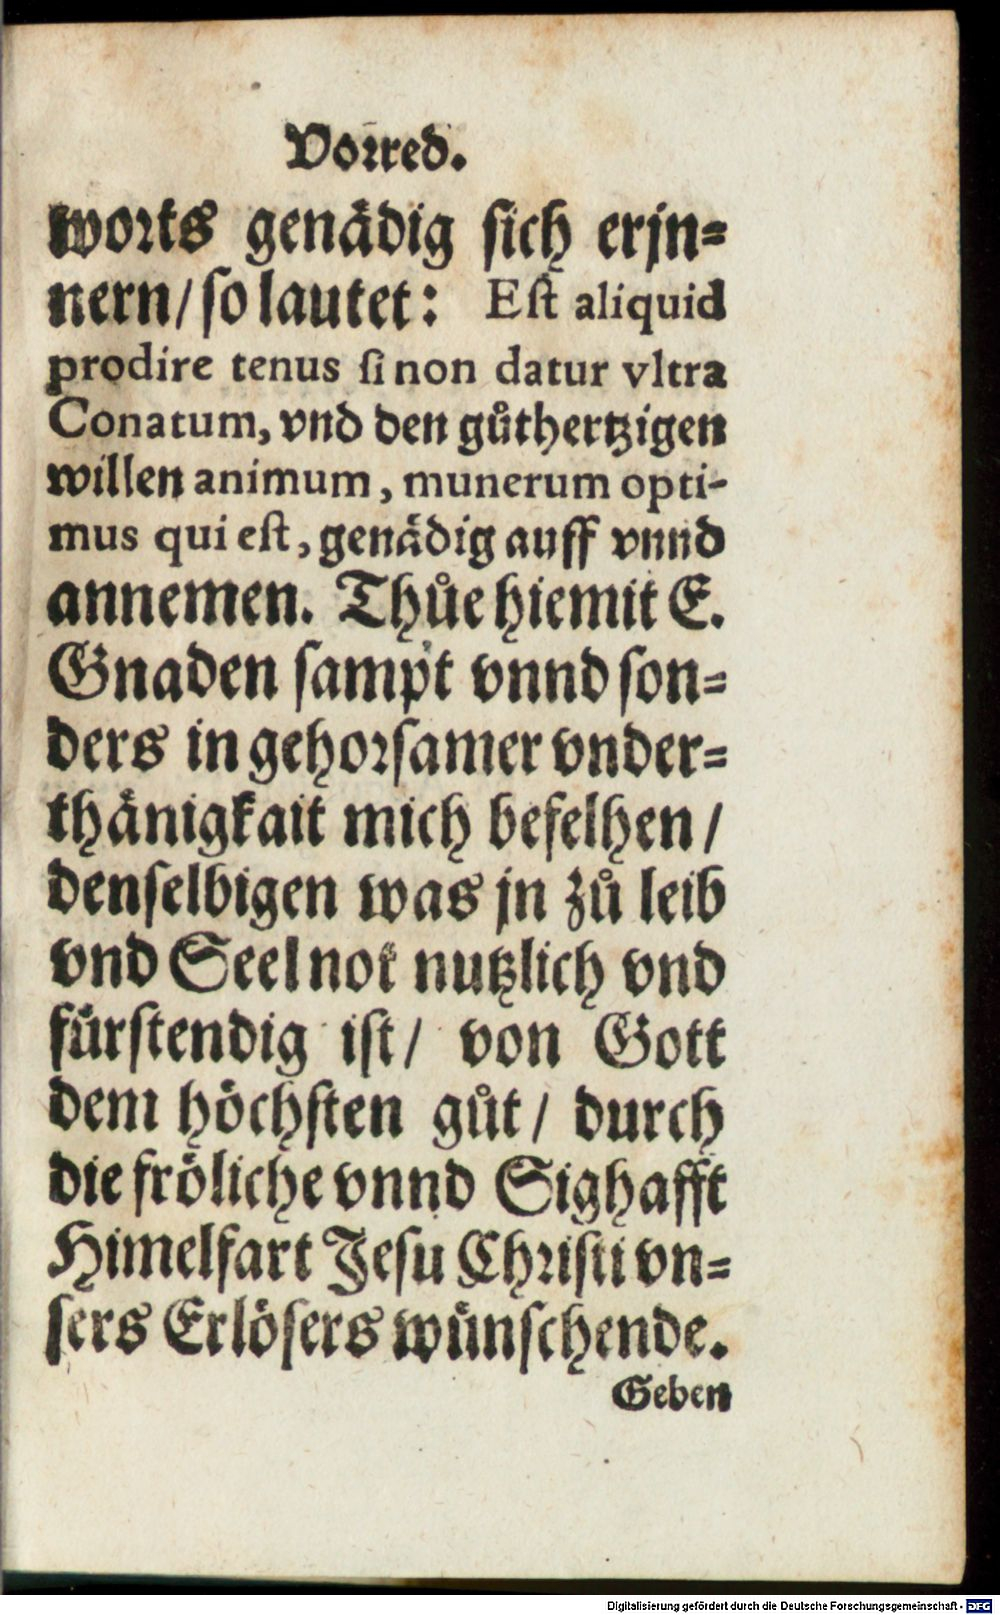 Vorred.
worts genädig sich erjn=
nern/ so lautet: Est aliquid
prodire tenus si non datur vltra
Conatum, vnd den gůthertzigen
willen animum, munerum opti-
mus qui est, genädig auff vnnd
annemen. Thůe hiemit E.
Gnaden sampt vnnd son=
ders in gehorsamer vnder=
thänigkait mich befelhen/
denselbigen was jn zů leib
vnd Seel not nutzlich vnd
fürstendig ist/ von Gott
dem höchsten gůt/ durch
die fröliche vnnd Sighafft
Himelfart Jesu Christi vn=
sers Erlösers wünschende.
Geben
Digitalisierung gefördert durch die Deutsche Forschungsgemeinschaft - DFG